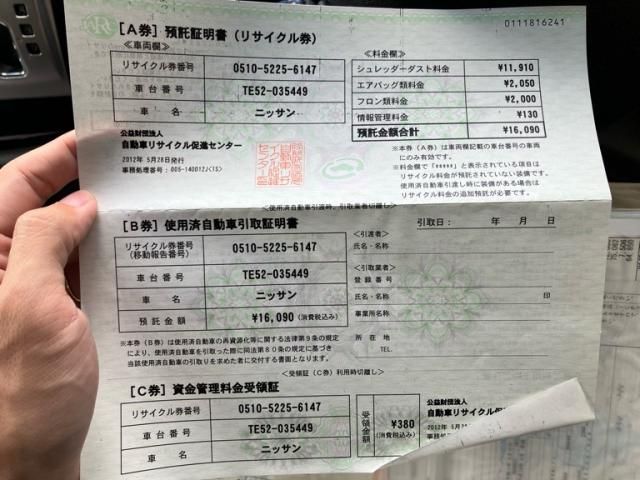 0111816241
[A券] 預託証明書 (リサイクル券)
≪車両欄≫
リサイクル券番号 0510-5225-6147
車台番号 TE52-035449
車名 ニッサン
公益財団法人
自動車リサイクル促進センター
2012年 5月28日発行
事務処理番号: 005-140012J(1S)
≪料金欄≫
シュレッダーダスト料金 ¥11,910
エアバッグ類料金 ¥2,050
フロン類料金 ¥2,000
情報管理料金 ¥130
預託金額合計 ¥16,090
※本券(A券)は車両欄記載の車台番号の車両
にのみ有効です。
※料金欄で「*****」と表示されている項目は
リサイクル料金が預託されていない装備です。
使用済自動車引渡し時に装備がある場合は
リサイクル料金の追加預託が必要です。
<使用済自動車引渡時、引取業者切離し>
[B券] 使用済自動車引取証明書
引取日: 年 月 日
リサイクル券番号
(移動報告番号) 0510-5225-6147
車台番号 TE52-035449
車名 ニッサン
預託金額 ¥16,090 (消費税込み)
<引渡者>
氏名・名称
<引取業者>
登録番号
氏名・名称 印
事業所名称
所在地
TEL.
※本券(B券)は使用済自動車の再資源化等に関する法律第9条の規定
により、使用済自動車を引取った際に同法第80条の規定に基づき
当該使用済自動車の引取りを求めた者に交付する書面となります。
<受領証(C券)利用時切離し>
[C券] 資金管理料金受領証
リサイクル券番号 0510-5225-6147
車台番号 TE52-035449
車名 ニッサン
受領金額 ¥380
(消費税込み)
公益財団法人
自動車リサイクル促
2012年 5月2